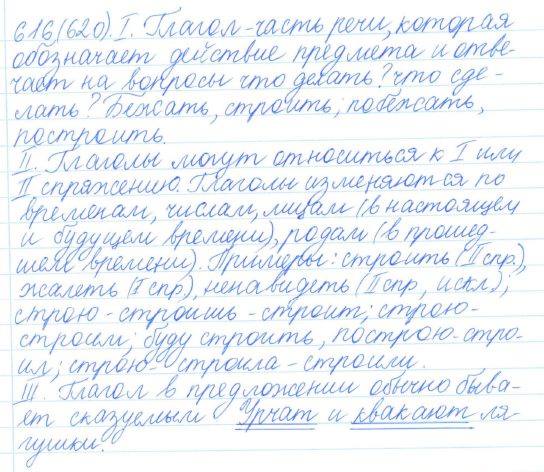 616(620). I. Глагол-часть речи, которая
обозначает действие предмета и отве-
чает на вопросы что делать? что сде-
лать? Бежать, строить; побежать,
построить.
II. Глаголы могут относиться к I или
II спряжению. Глаголы изменяются по
временам, числам, лицам (в настоящем
и будущем времени), родам (в прошед-
шем времени). Примеры: строить (II спр.),
жалеть (I спр), ненавидеть (II спр, искл);
строю-строишь-строит; строю-
строим; буду строить, построю-стро-
ил; строю-строила-строили.
III. Глагол в предложении обычно быва-
ет сказуемым Урчат и квакают ля-
гушки.